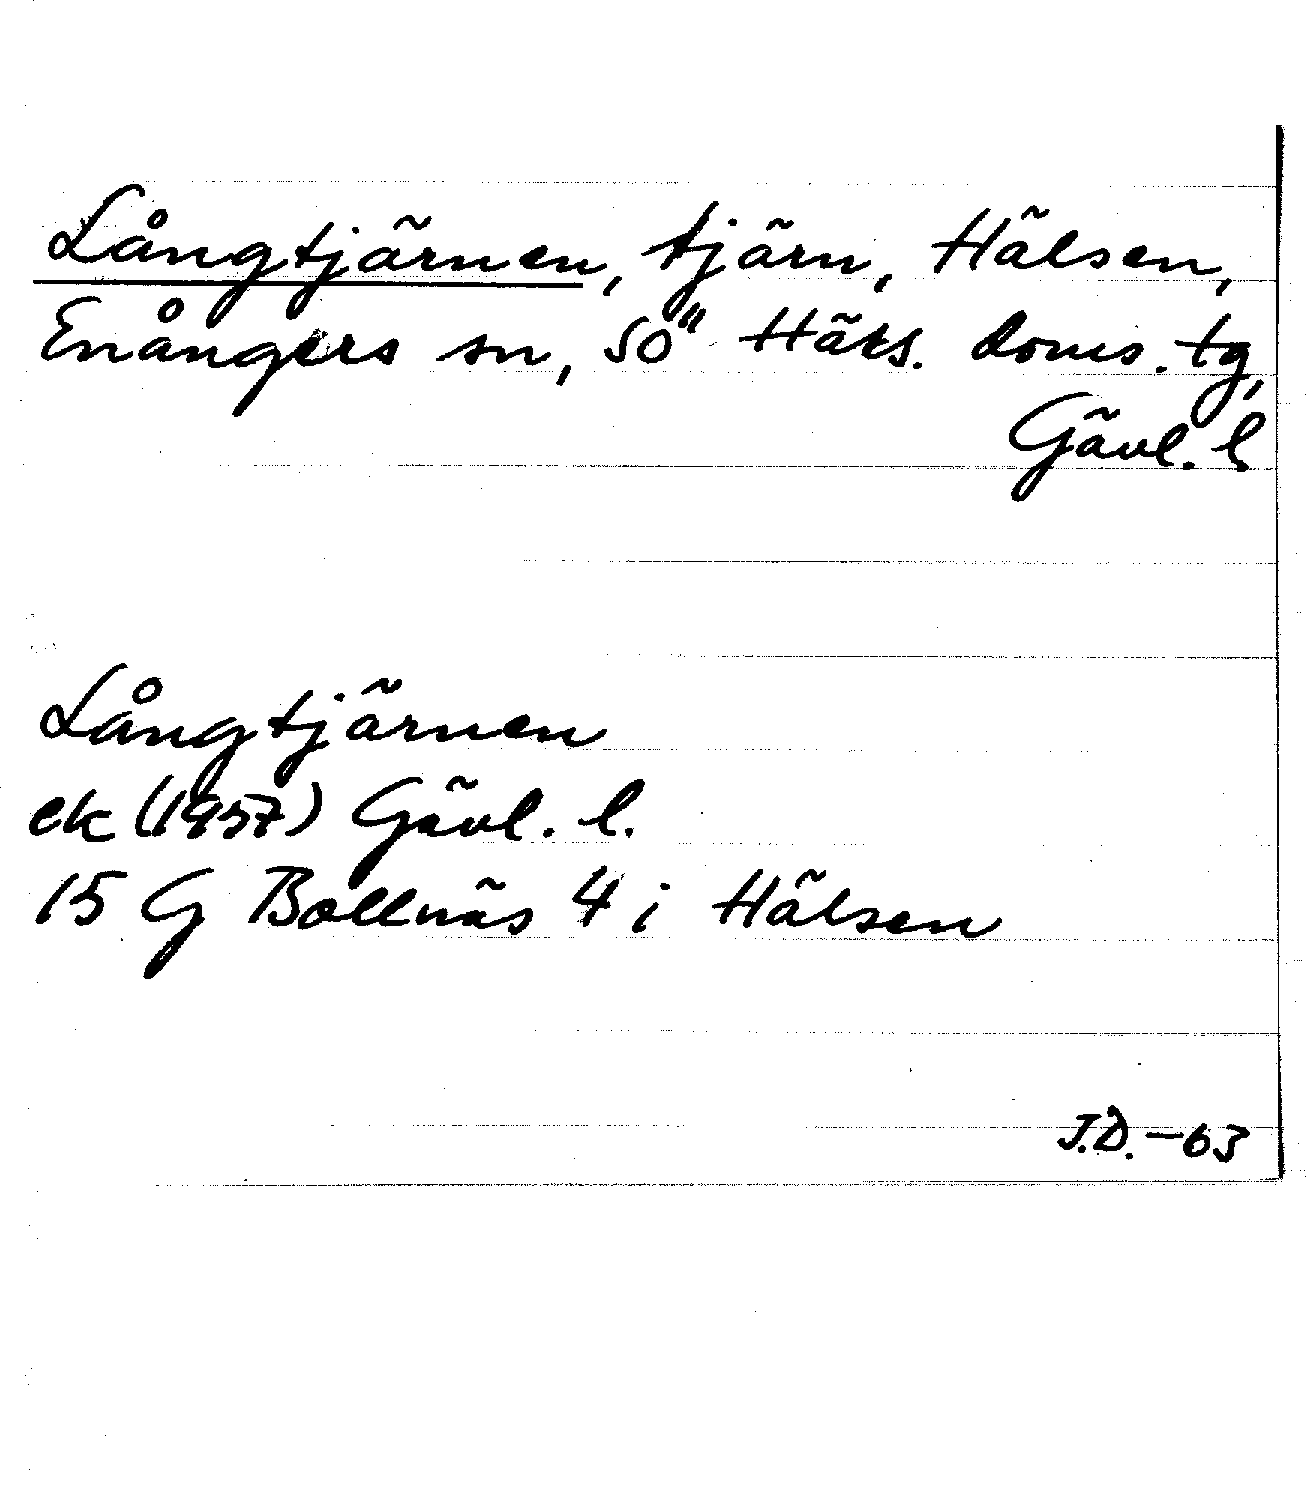 Långtjärnen, tjärn, Hälsen,
Enångers sn, SO" Häls. doms. tg,
Gävl. l.
Långtjärnen
ek (1957) Gävl. l.
15 G Bollnäs 4 i Hälsen
J.D. -63